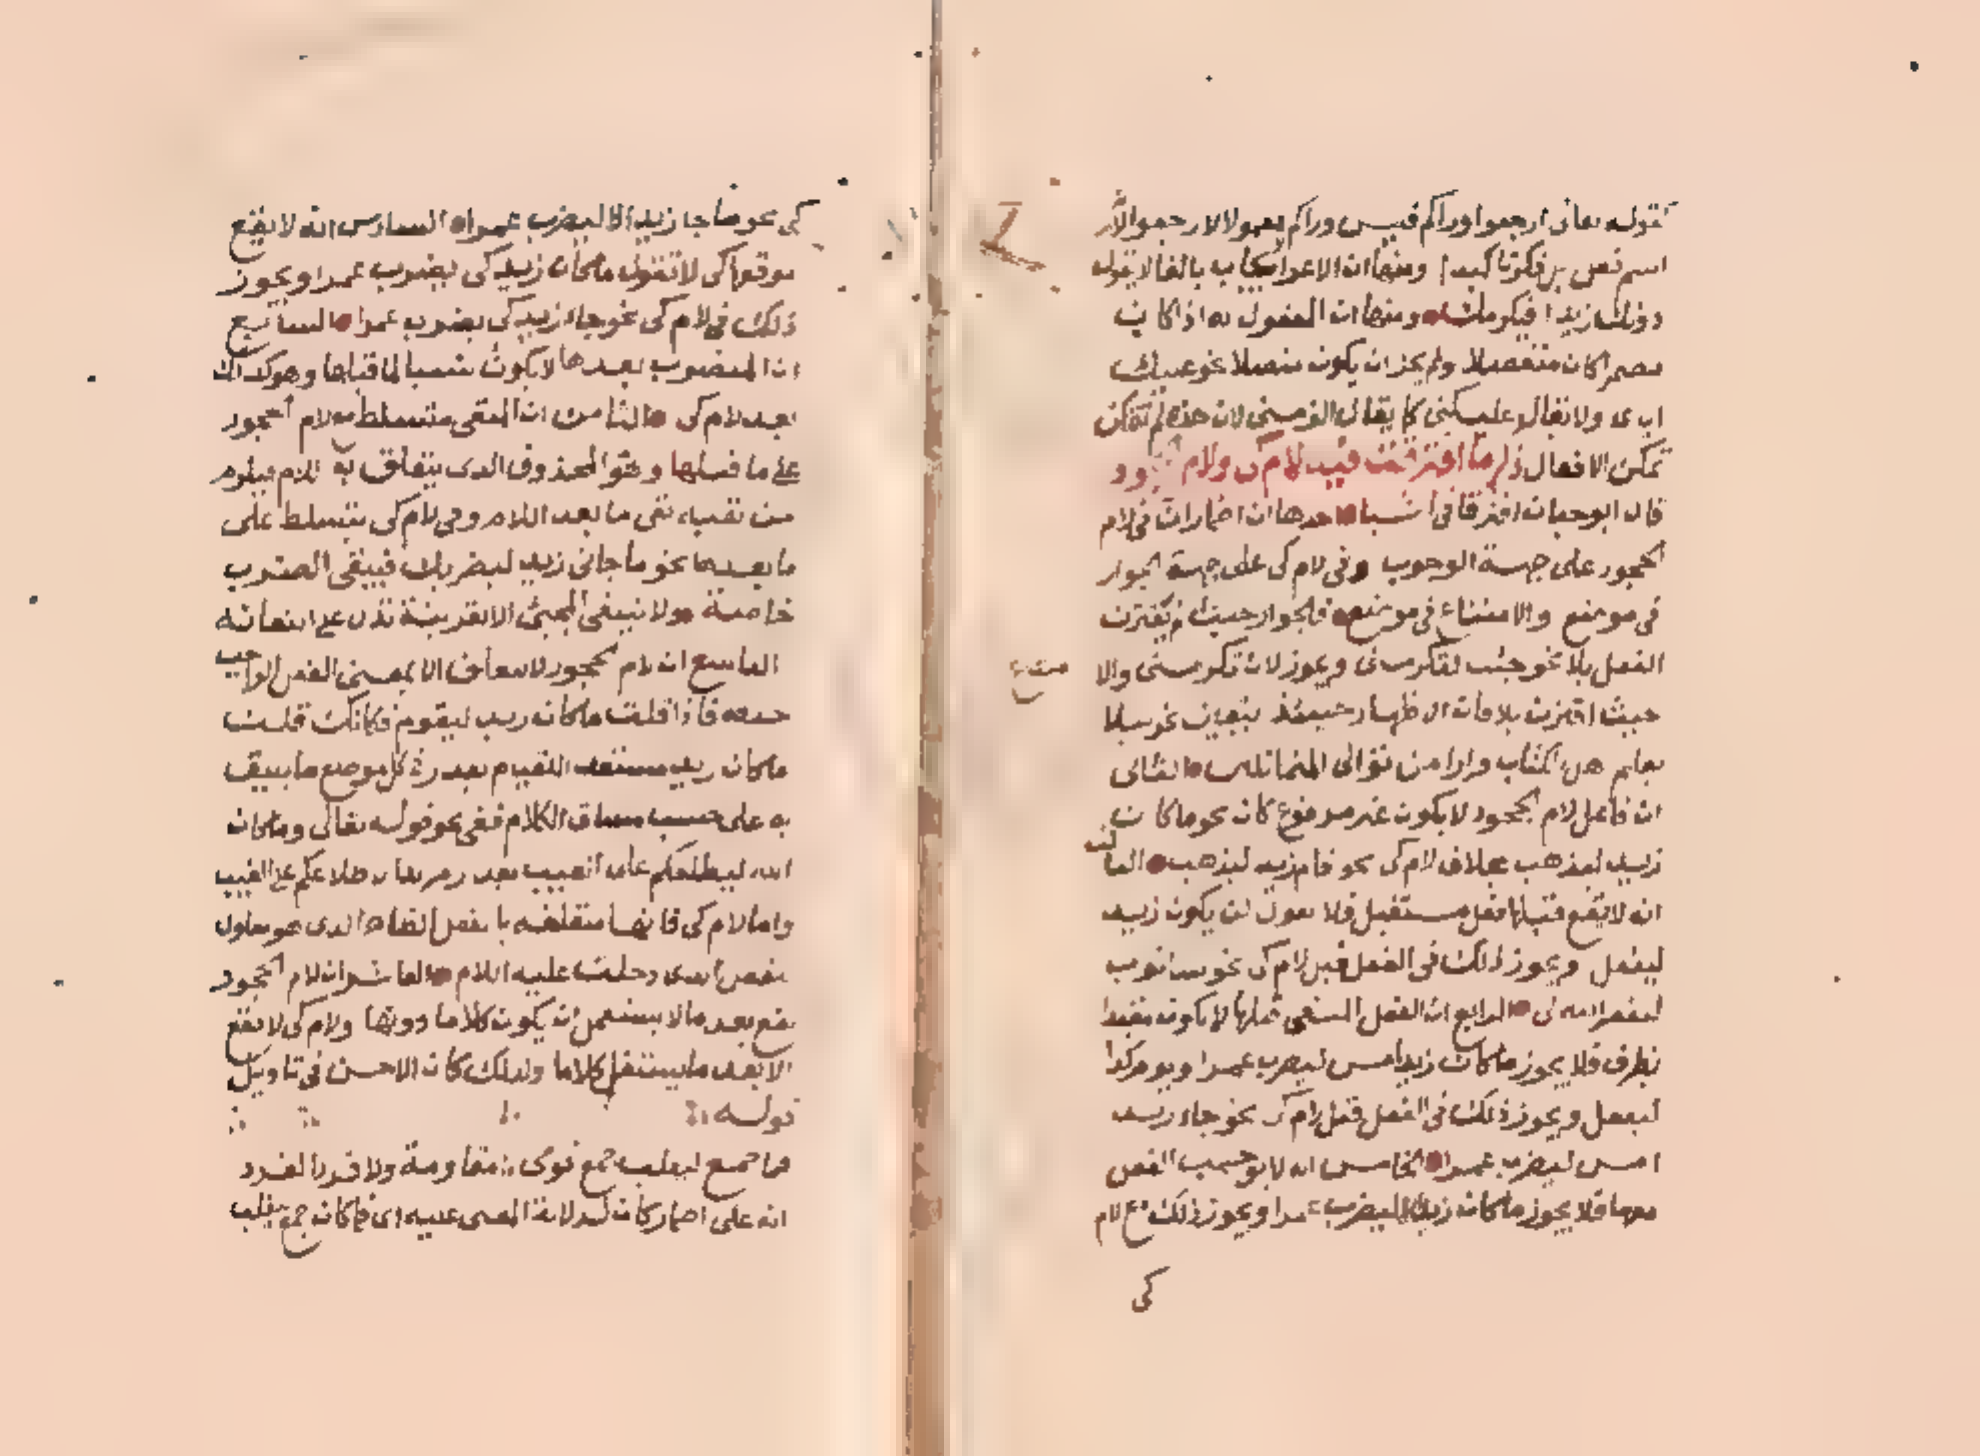 كقوله تعالى ارجعوا وراكم فليس وراكم معمولا لارجعوا لانه
اسم فعل بل ذكر تاكيدا ومنها ان الاغرا يجاب بالفا لا يقول
دونك زيدا فيكرمك ومنها ان المفعول به اذا كان
مضمرا كان منفصلا ولم يجز ان يكون متصلا نحو عليك
اياى ولا يقال عليكنى كما يقال الزمنى لان هذه لم تمكن
تمكن الافعال ذكر ما افترقت فيه لام كى ولام الجحود
قال ابو حيان افترقا فى اشيا احدها ان اضمار ان فى لام
الجحود على جهة الوجوب وفى لام كى على جهة الجواز
فى موضع والامتناع فى موضع فالجواز حيث لم يقترن
الفعل بلا نحو جئت لتكرمنى ويجوز لان تكرمنى والا
متناع
حيث اقترن بلا فان الاظهار حينئذ يتعين نحو ليلا
يعلم اهل الكتاب فرارا من توالى المتماثلين الثانى
ان فاعل لام الجحود لا يكون غير مرفوع كان نحو ما كان
زيد ليذهب بخلاف لام كى نحو قام زيد ليذهب الثالث
انه لا يقع قبلها فعل مستقبل فلا تقول لن يكون زيد
ليفعل ويجوز ذلك فى الفعل قبل لام كى نحو ساتوب
ليغفر الله لى الرابع ان الفعل المنفى قبلها لا يكون مقيدا
بظرف فلا يجوز ما كان زيد امس ليضرب عمرا ويوم كذا
ليفعل ويجوز ذلك فى الفعل قبل لام كى نحو جاء زيد
امس ليضرب عمرا الخامس انه لا يوجب الفعل
معها فلا يجوز ما كان زيد الا ليضرب عمرا ويجوز ذلك مع لام
كى
كى نحو ما جا زيد الا ليضرب عمرا السادس انه لا يقع
موقعها كى لا تقول ما كان زيد كى يضرب عمرا ويجوز
ذلك فى لام كى نحو جاء زيد كى يضرب عمرا السابع
ان المنصوب بعدها لا يكون سببا لما قبلها وهو كذلك
بعد لام كى الثامن ان النفى متسلط مع لام الجحود
على ما قبلها وهو المحذوف الذى يتعلق به اللام فيلزم
من نفيه نفى ما بعد اللام وفى لام كى يتسلط على
ما بعدها نحو ما جانى زيد ليضربك فينتفى الضرب
خاصة ولا ينتفى المجئ الا بقرينة تدل على انتفائه
التاسع ان لام الجحود لا تتعلق الا بمعنى الفعل الواجب
حذفه فاذا قلت ما كان زيد ليقوم فكانك قلت
ما كان زيد مستعدا للقيام بعد رفى كل موضع ما يليق
به على حسب مساق الكلام ففى نحو قوله تعالى وما كان
الله ليطلعكم على الغيب يقدر مريدا لاطلاعكم على الغيب
واما لام كى فانها متعلقة بالفعل الظاهر الذى هو معلول
للفعل الذى دخلت عليه اللام العاشر ان لام الجحود
تقع بعد ما لا يستقل ان يكون كلاما دونها ولام كى لا تقع
الا بعد ما يستقل كلاما ولذلك كان الاحسن فى تاويل
قوله
فما جمع ليغلب جمع قومى مقاومة ولا فرد لفرد
انه على اضمار كان لدلالة المعنى عليه اى فما كان جمع ليغلب